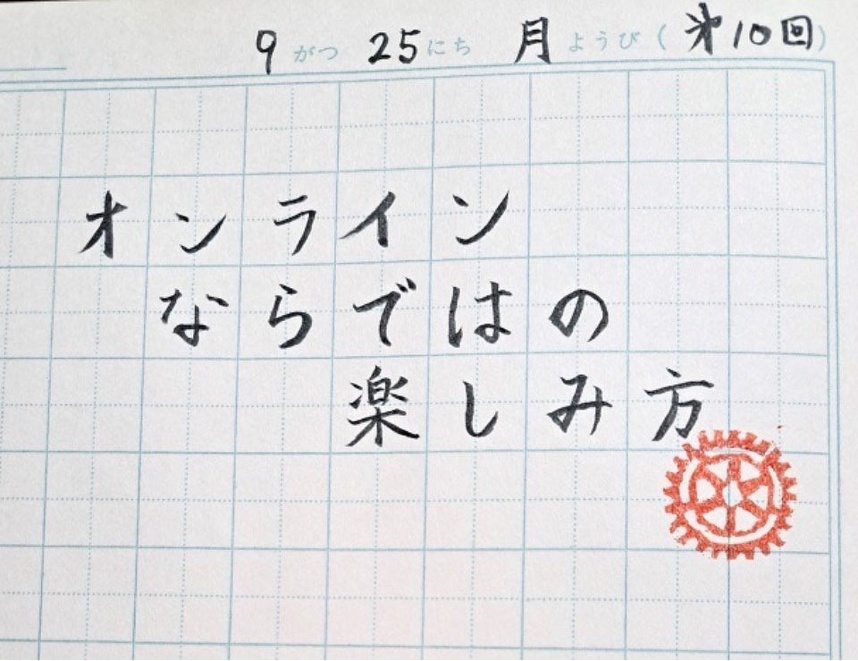 9がつ 25にち 月ようび(第10回)
オンライン
ならではの
楽しみ方